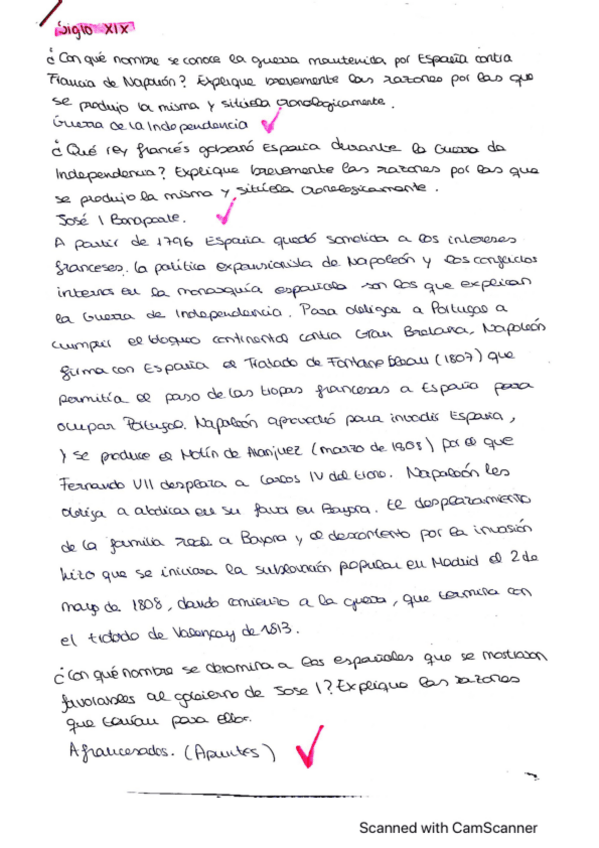 Siglo XIX
¿Con qué nombre se conoce la guerra mantenida por España contra
Francia de Napoleón? Explique brevemente las razones por las que
se produjo la misma y sitúela cronologicamente.
Guerra de la Independencia
¿Qué rey francés gobernó España durante la Guerra de
Independencia? Explique brevemente las razones por las que
se produjo la misma y sitúela cronologicamente.
José I Bonaparte.
A partir de 1796 España quedó sometida a los intereses
franceses. La política expansionista de Napoleón y los conflictos
internos en la monarquía española son los que explican
la Guerra de Independencia. Para obligar a Portugal a
cumplir el bloqueo continental contra Gran Bretaña, Napoleón
firma con España el Tratado de Fontainebleau (1807) que
permitía el paso de las tropas francesas a España para
ocupar Portugal. Napoleón aprovechó para invadir España,
y se produce el Motín de Aranjuez (marzo de 1808) por el que
Fernando VII desplaza a Carlos IV del trono. Napoleón les
obliga a abdicar en su favor en Bayona. El desplazamiento
de la familia real a Bayona y el descontento por la invasión
hizo que se iniciara la sublevación popular en Madrid el 2 de
mayo de 1808, dando comienzo a la guerra, que termina con
el tratado de Valençay de 1813.
¿Con qué nombre se denomina a los españoles que se mostraron
favorables al gobierno de Jose I? Explique las razones
que tenían para ello.
Afrancesados. (Apuntes)
Scanned with CamScanner